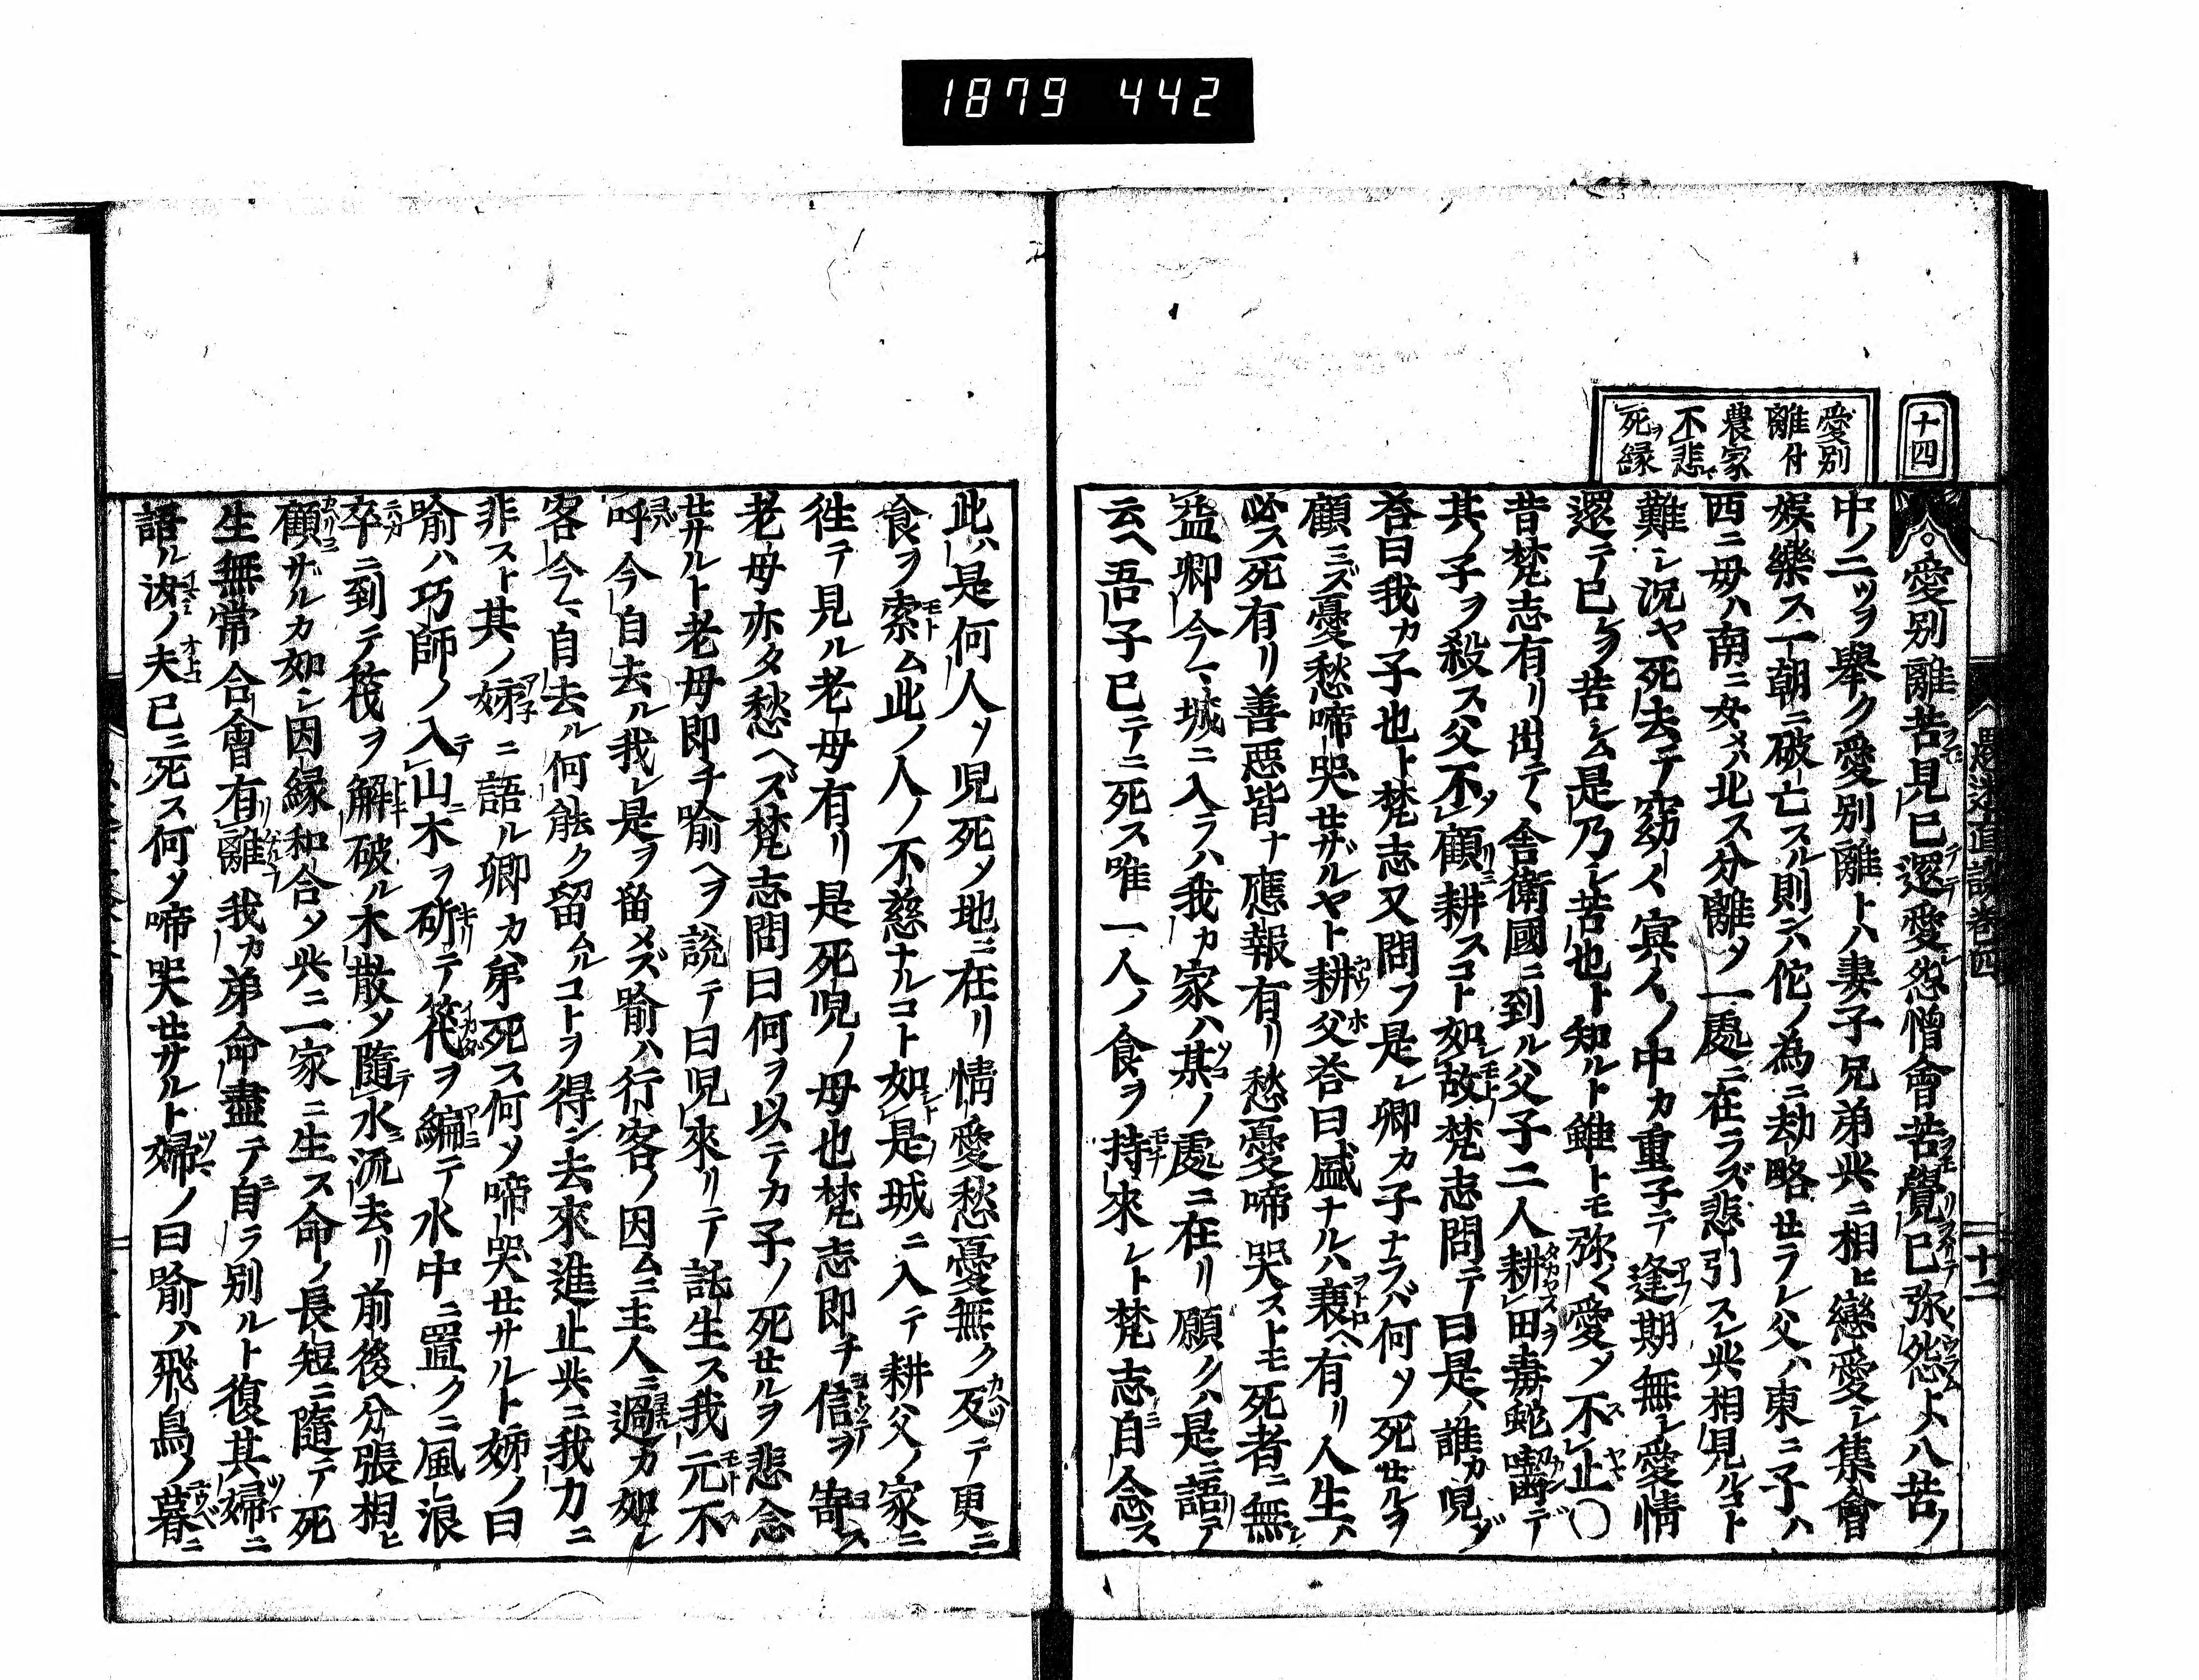 1879 442
十四
愛別
離付
農家
不悲
死ヲ縁
愚迷直談巻四
十二
○愛別離苦見已還愛怨憎會苦覺已弥怨トハ八苦ノ
中ノ二ツヲ舉ク愛別離トハ妻子兄弟共ニ相ヒ戀愛シ集會
娯樂ス一朝ニ破亡スル則ンハ佗ノ為ニ劫略セラレ父ハ東ニ子ハ
西ニ母ハ南ニ女メハ北ス分離ソ一處ニ在ラズ悲引スレ共相見ルコト
難シ況ヤ死去テ窈々冥々ノ中カ重子テ逢期無シ愛情
還テ已レヲ苦シム是乃シ苦也ト知ルト雖トモ弥々愛ソ不止○
昔梵志有リ出テヽ舎衛國ニ到ル父子二人耕田毒蛇囓デ
其ノ子ヲ殺ス父不顧耕スコト如故梵志問テ曰是ハ誰カ児ゾ
荅曰我カ子也ト梵志又問フ是レ卿カ子ナラバ何ソ死セルヲ
顧ミズ憂愁啼哭セザルヤト耕父荅曰盛ナルハ衰ヘ有リ人生ハ
必ス死有リ善惡皆ナ應報有リ愁憂啼哭ストモ死者ニ無
益卿今マ城ニ入ラハ我カ家ハ某ノ處ニ在リ願クハ是ニ語テ
云ヘ吾子已テニ死ス唯一人ノ食ヲ持來レト梵志自念ス
此ハ是何人ソ児死ソ地ニ在リ情愛愁憂無ク反テ更ニ
食ヲ索ム此ノ人ノ不慈ナルコト如是城ニ入テ耕父ノ家ニ
徃テ見ル老母有リ是死児ノ母也梵志即チ信ヲ寄ス
老母亦タ愁ヘズ梵志問曰何ヲ以テカ子ノ死セルヲ悲念
セサルト老母即チ喩ヘヲ説テ曰児來リテ託生ス我元不
呼今自去ル我レ是ヲ留メズ喩ハ行客ノ因ムニ主人ニ過カ如レ
客今マ自去ル何能ク留ムルコトヲ得ン去來進止共ニ我力ニ
非スト其ノ姉ニ語ル卿カ弟死ス何ソ啼哭セサルト姉ノ曰
喩ハ巧師ノ入山木ヲ斫テ筏ヲ編テ水中ニ置クニ風浪
卒ニ到テ筏ヲ解破ル木散ソ隨水流去リ前後分張相ヒ
顧サルカ如シ因縁和合ソ共ニ一家ニ生ス命ノ長短ニ隨テ死
生無常合會有離我カ弟命盡テ自ラ別ルト復其婦ニ
語ル汝ノ夫已ニ死ス何ソ啼哭セサルト婦ノ曰喩ハ飛鳥ノ暮ニ